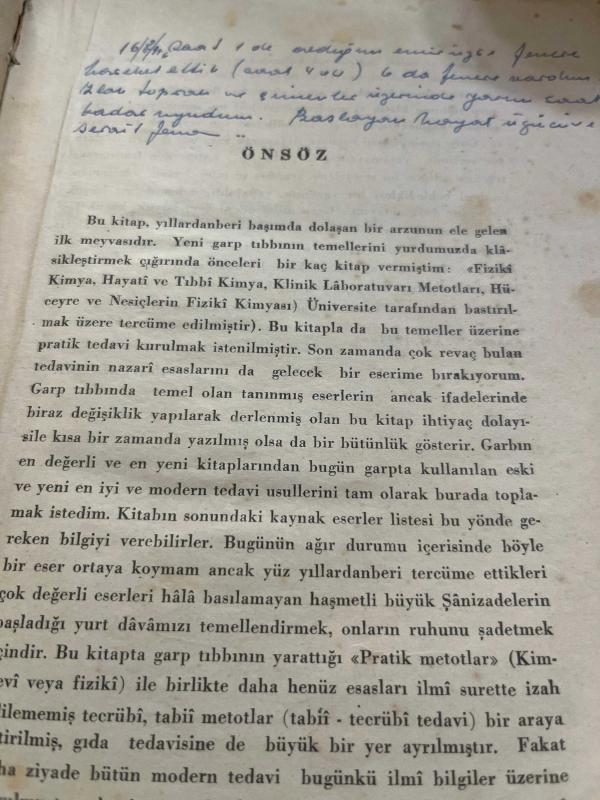 16/8/ Saat 1 de aldığım emir üzre fenere
hareket ettik (saat 4 de) 6 da fenere vardım.
toprak ve çimenler üzerinde yarım saat
kadar uyudum. Başlayan hayat üzücü ve
fena ..
ÖNSÖZ
Bu kitap, yıllardanberi başımda dolaşan bir arzunun ele gelen
ilk meyvasıdır. Yeni garp tıbbının temellerini yurdumuzda klâ-
sikleştirmek çığırında önceleri bir kaç kitap vermiştim: «Fizikî
Kimya, Hayatî ve Tıbbî Kimya, Klinik Lâboratuvarı Metotları, Hü-
ceyre ve Nesiçlerin Fizikî Kimyası) Üniversite tarafından bastırıl-
mak üzere tercüme edilmiştir). Bu kitapla da bu temeller üzerine
pratik tedavi kurulmak istenilmiştir. Son zamanda çok revaç bulan
tedavinin nazarî esaslarını da gelecek bir eserime bırakıyorum.
Garp tıbbında temel olan tanınmış eserlerin ancak ifadelerinde
biraz değişiklik yapılarak derlenmiş olan bu kitap ihtiyaç dolayı-
sile kısa bir zamanda yazılmış olsa da bir bütünlük gösterir. Garbın
en değerli ve en yeni kitaplarından bugün garpta kullanılan eski
ve yeni en iyi ve modern tedavi usullerini tam olarak burada topla-
mak istedim. Kitabın sonundaki kaynak eserler listesi bu yönde ge-
reken bilgiyi verebilirler. Bugünün ağır durumu içerisinde böyle
bir eser ortaya koymam ancak yüz yıllardanberi tercüme ettikleri
çok değerli eserleri hâlâ basılamayan haşmetli büyük Şânizadelerin
başladığı yurt dâvâmızı temellendirmek, onların ruhunu şadetmek
çindir. Bu kitapta garp tıbbının yarattığı «Pratik metotlar» (Kim-
evî veya fizikî) ile birlikte daha henüz esasları ilmî surette izah
dilememiş tecrübî, tabiî metotlar (tabiî - tecrübî tedavi) bir araya
tirilmiş, gıda tedavisine de büyük bir yer ayrılmıştır. Fakat
ha ziyade bütün modern tedavi bugünkü ilmî bilgiler üzerine